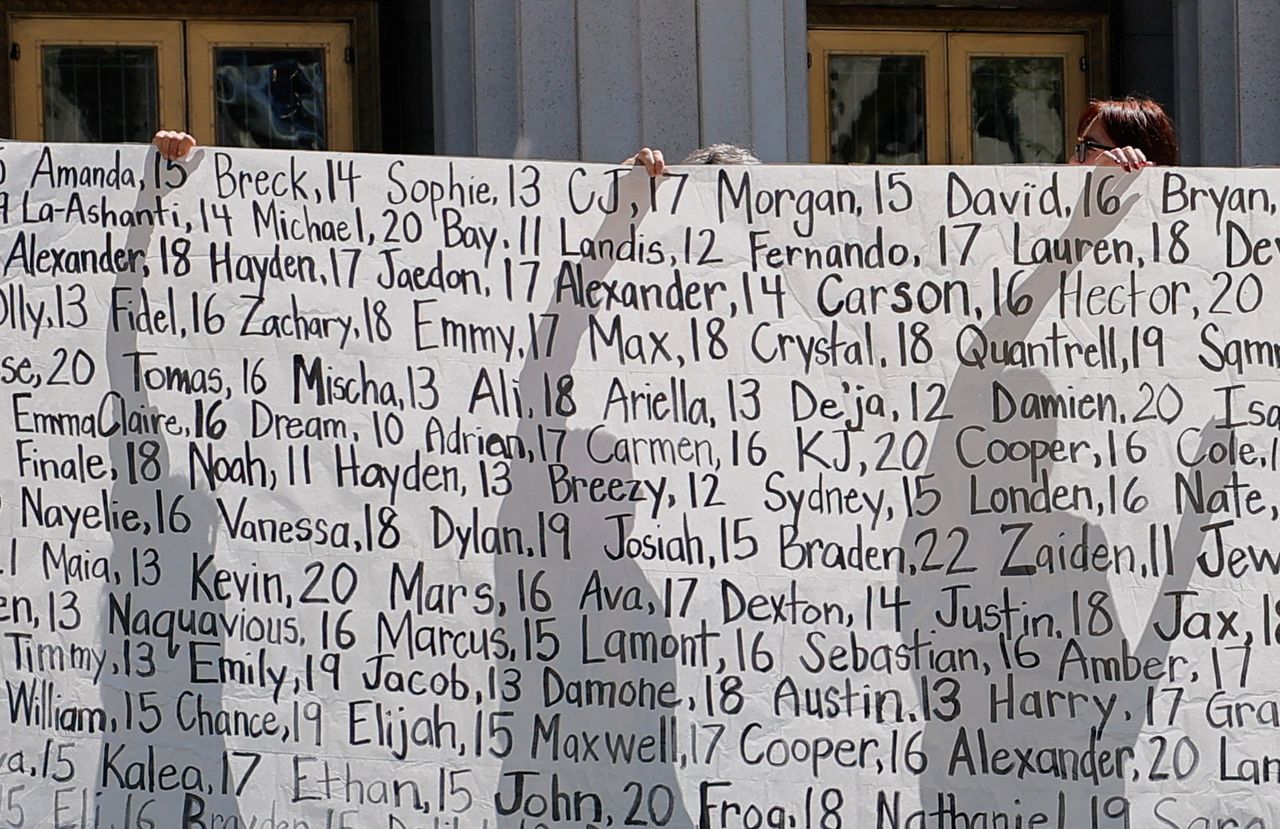 Amanda, 15 Breck, 14 Sophie, 13 CJ, 17 Morgan, 15 David, 16 Bryan,
La-Ashanti, 14 Michael, 20 Bay, 11 Landis, 12 Fernando, 17 Lauren, 18 De
Alexander, 18 Hayden, 17 Jaedon, 17 Alexander, 14 Carson, 16 Hector, 20
lly, 13 Fidel, 16 Zachary, 18 Emmy, 17 Max, 18 Crystal, 18 Quantrell, 19 Sam
se, 20 Tomas, 16 Mischa, 13 Ali, 18 Ariella, 13 De'ja, 12 Damien, 20 Isa
EmmaClaire, 16 Dream, 10 Adrian, 17 Carmen, 16 KJ, 20 Cooper, 16 Cole,
Finale, 18 Noah, 11 Hayden, 13 Breezy, 12 Sydney, 15 Londen, 16 Nate,
Nayelie, 16 Vanessa, 18 Dylan, 19 Josiah, 15 Braden, 22 Zaiden, 11 Jew
Maia, 13 Kevin, 20 Mars, 16 Ava, 17 Dexton, 14 Justin, 18 Jax,
en, 13 Naquavious, 16 Marcus, 15 Lamont, 16 Sebastian, 16 Amber, 17
Timmy, 13 Emily, 19 Jacob, 13 Damone, 18 Austin, 13 Harry, 17 Gra
William, 15 Chance, 19 Elijah, 15 Maxwell, 17 Cooper, 16 Alexander, 20 Lan
a, 15 Kalea, 17 Ethan, 15 John, 20 Frog, 18 Nathaniel, 19
Eli, 16 Brayden, 15